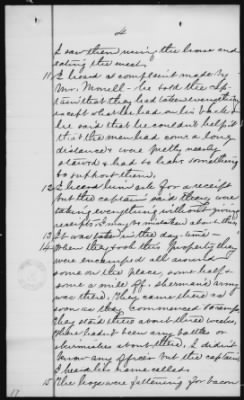 4
I saw them using the house and
eating the meat.
11. I heard a complaint made by
Mr. Morell - he told the Cap-
tain that they had taken everything
except what he had on his back &
he said that he couldn't help it
that the men had come a long
distance & were pretty nearly
starved & had to have something
to support them.
12. I heard him ask for a receipt
but the captain said they were
taking everything without giving
receipts
13. It was late in the day time -
14. When they took this property they
were encamped all around -
some on the place, some half &
some a mile off. Sherman's army
was there. They came there as
soon as they commenced
they staid there about three weeks,
There hadn't been any battles or
skirmishes about there. I didn't
know any officer but the captain
I heard his name called.
15 The hogs were fattening for bacon
17